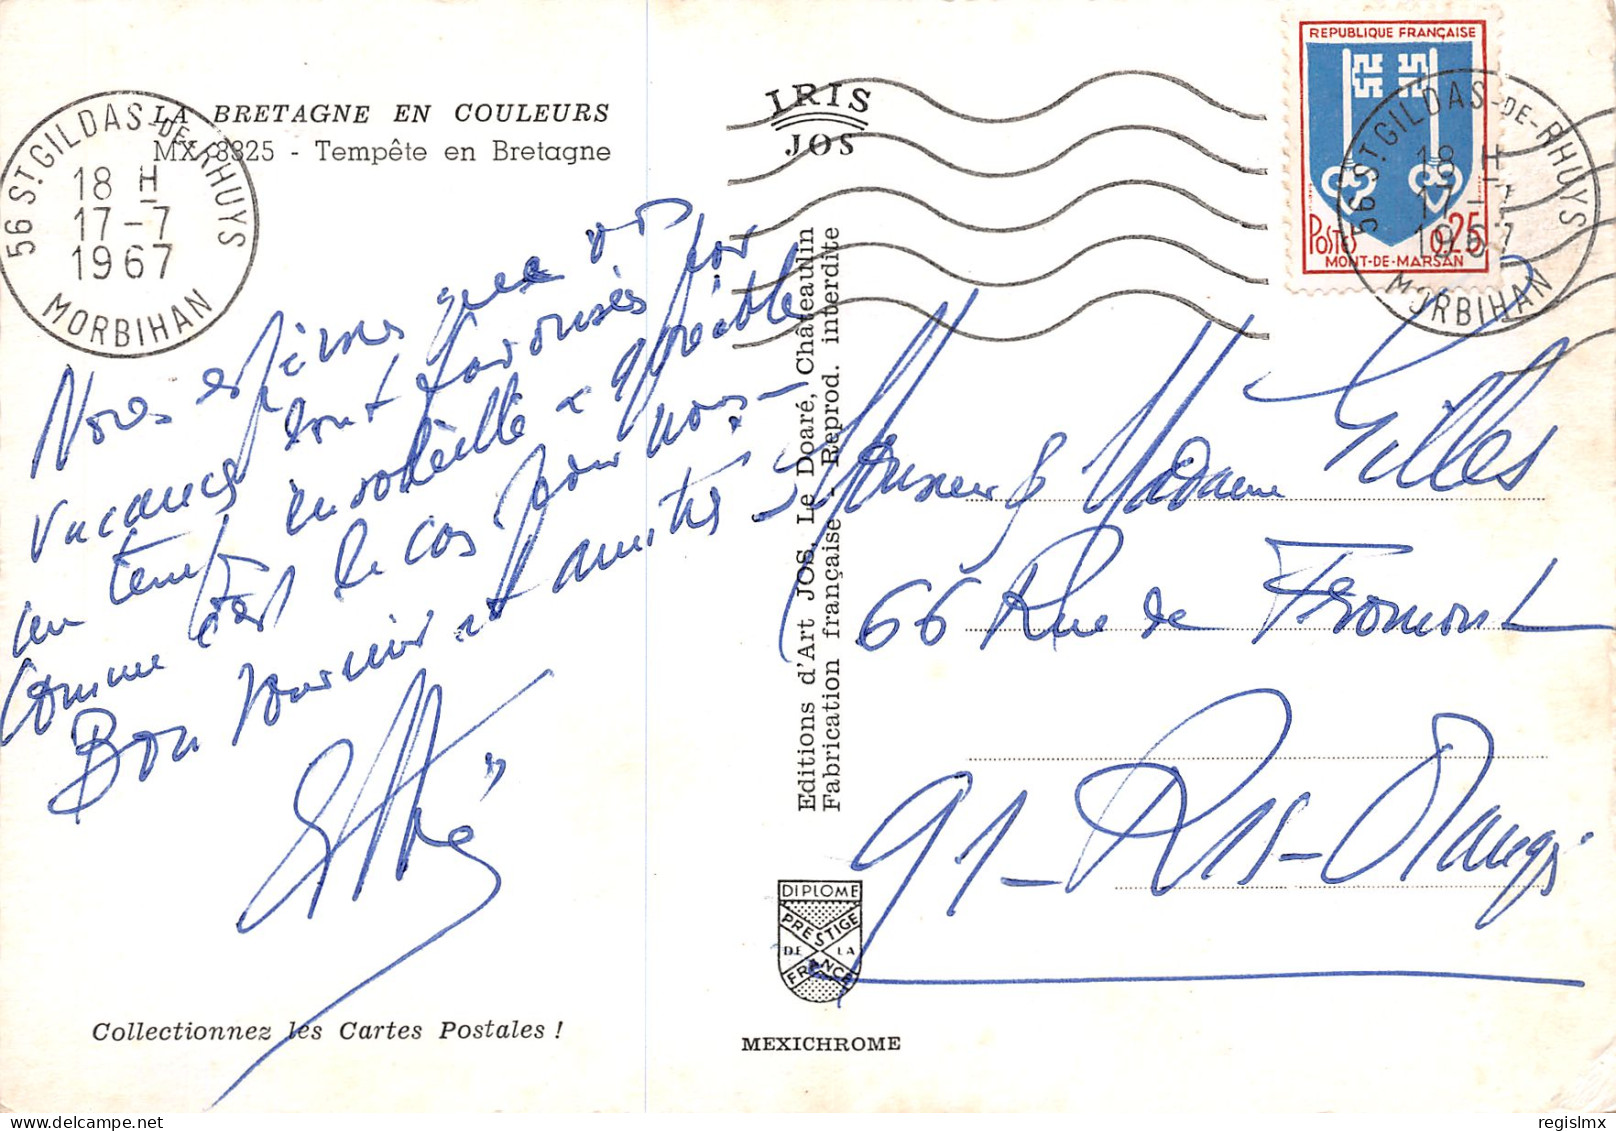 LA BRETAGNE EN COULEURS
MX 3325 - Tempête en Bretagne
56 ST GILDAS-DE-RHUYS
18 H
17-7
1967
MORBIHAN
Nous espérons que vos
vacances sont favorisés par
un temps ensoleillé & agréable
comme c'est le cas pour nous -
Bon souvenir et amitiés -
Collectionnez les Cartes Postales !
IRIS
JOS
Editions d'Art JOS, Le Doaré, Châteaulin
Fabrication française - Reprod. interdite
DIPLOME
PRESTIGE
DE LA
FRANCE
MEXICHROME
REPUBLIQUE FRANÇAISE
POSTES
0,25
MONT-DE-MARSAN
56 ST GILDAS-DE-RHUYS
18 H
17-7
1967
MORBIHAN
Monsieur & Madame Gilles
66 Rue de Fromont
91 - Ris - Orangis
regislmx